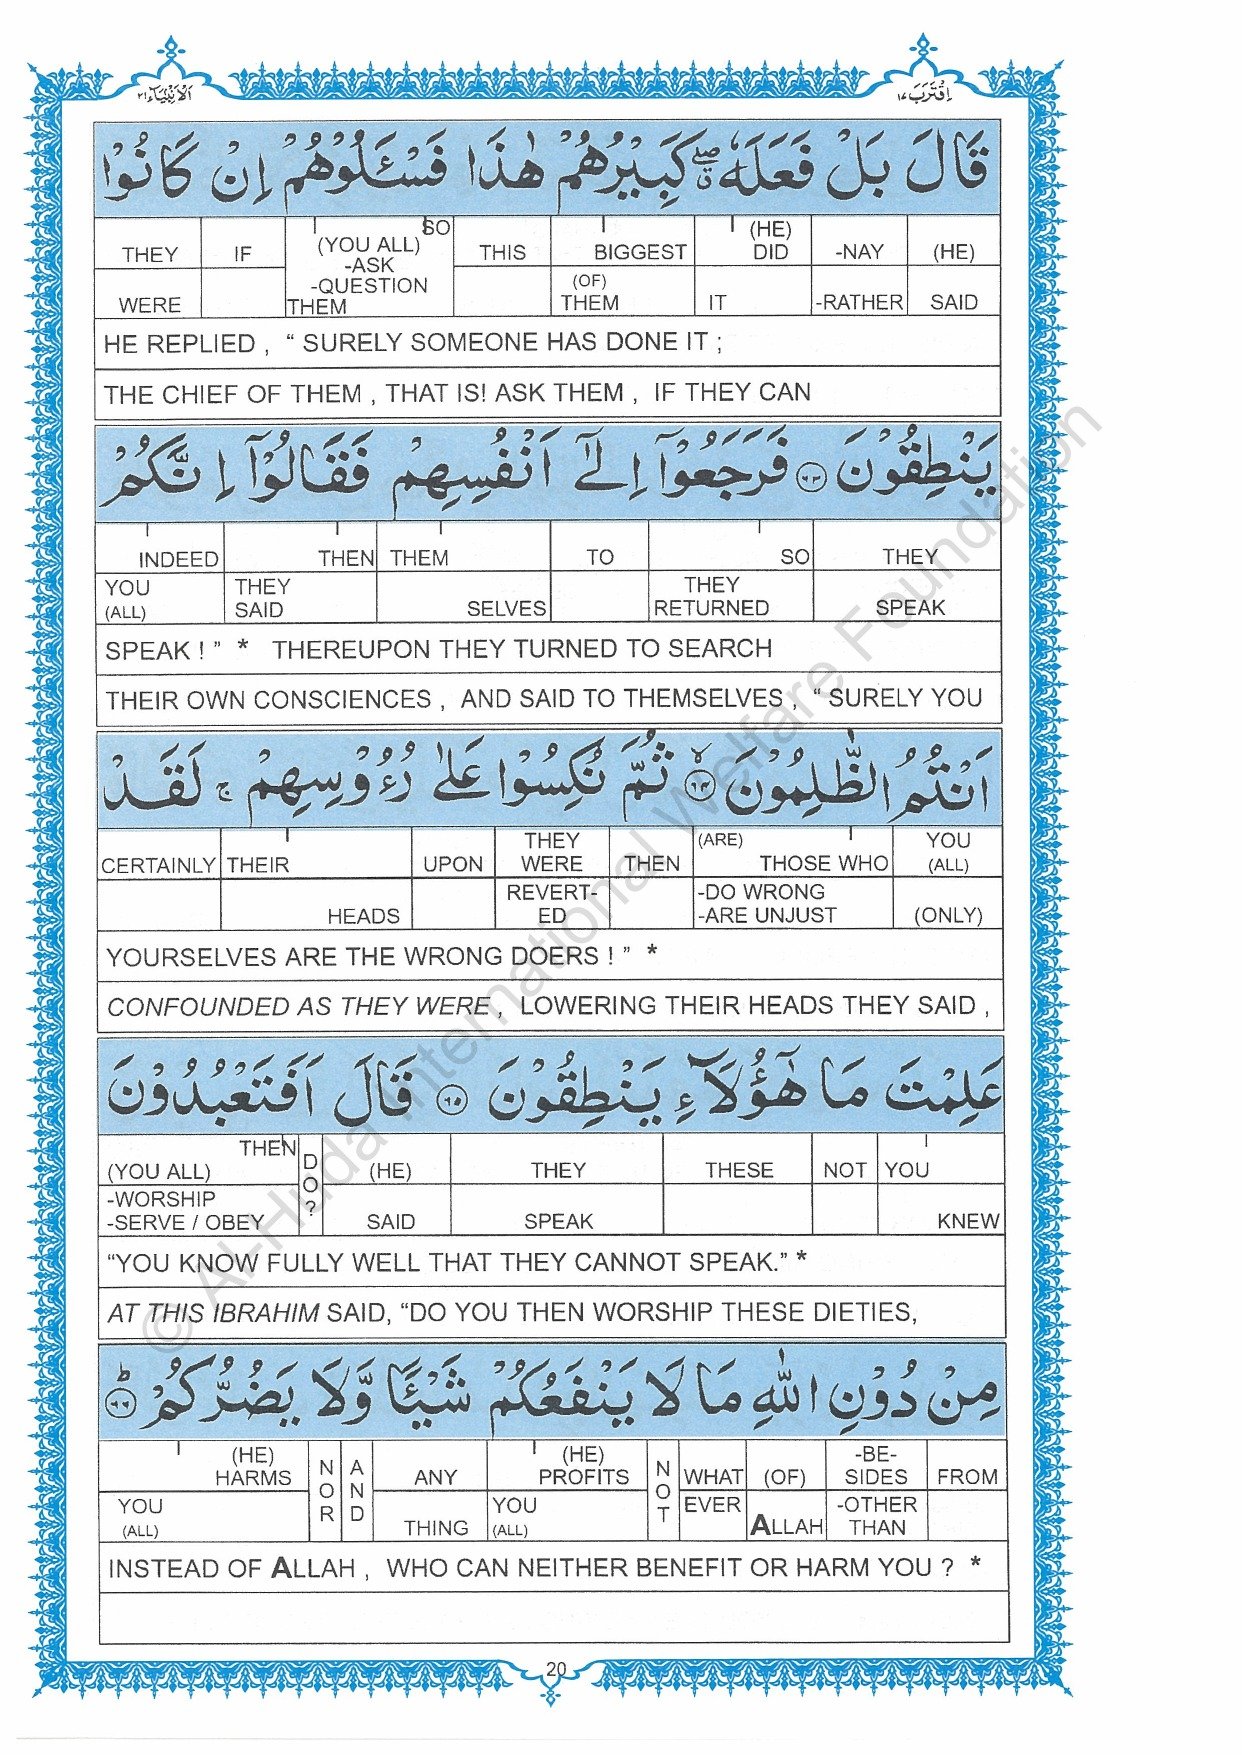 الانبيآء ٢١
اقترب ١٧
قَالَ بَلْ فَعَلَهٗ ۖۗ كَبِيْرُهُمْ هٰذَا فَسْـَٔلُوْهُمْ اِنْ كَانُوْا
(HE) -NAY (HE) DID BIGGEST THIS SO (YOU ALL) -ASK -QUESTION THEM IF THEY
SAID -RATHER IT (OF) THEM WERE
HE REPLIED , “ SURELY SOMEONE HAS DONE IT ;
THE CHIEF OF THEM , THAT IS! ASK THEM , IF THEY CAN
يَنْطِقُوْنَ ۝٦٣ فَرَجَعُوْٓا اِلٰٓى اَنْفُسِهِمْ فَقَالُوْٓا اِنَّكُمْ
THEY SO TO THEM THEN INDEED
SPEAK THEY RETURNED SELVES THEY SAID YOU (ALL)
SPEAK ! ” * THEREUPON THEY TURNED TO SEARCH
THEIR OWN CONSCIENCES , AND SAID TO THEMSELVES , “ SURELY YOU
اَنْتُمُ الظّٰلِمُوْنَ ۝٦٤ۙ ثُمَّ نُكِسُوْا عَلٰى رُءُوْسِهِمْ ۚ لَقَدْ
YOU (ALL) (ARE) THOSE WHO THEN THEY WERE UPON THEIR CERTAINLY
(ONLY) -DO WRONG -ARE UNJUST REVERT-ED HEADS
YOURSELVES ARE THE WRONG DOERS ! ” *
CONFOUNDED AS THEY WERE , LOWERING THEIR HEADS THEY SAID ,
عَلِمْتَ مَا هٰٓؤُلَآءِ يَنْطِقُوْنَ ۝٦٥ قَالَ اَفَتَعْبُدُوْنَ
YOU NOT THESE THEY (HE) DO? THEN (YOU ALL)
KNEW SPEAK SAID -WORSHIP -SERVE / OBEY
“YOU KNOW FULLY WELL THAT THEY CANNOT SPEAK.” *
AT THIS IBRAHIM SAID, “DO YOU THEN WORSHIP THESE DIETIES,
مِنْ دُوْنِ اللّٰهِ مَا لَا يَنْفَعُكُمْ شَيْـًٔا وَّلَا يَضُرُّكُمْ ۝٦٦ؕ
FROM -BE-SIDES (OF) WHAT NOT (HE) PROFITS ANY AND NOR (HE) HARMS
-OTHER THAN ALLAH EVER YOU (ALL) THING YOU (ALL)
INSTEAD OF ALLAH , WHO CAN NEITHER BENEFIT OR HARM YOU ? *
20
© Al-Huda International Welfare Foundation